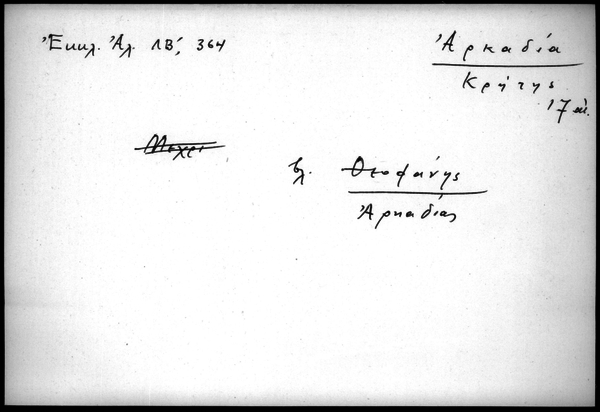 Ἐκκλ. Ἀλ. ΛΒ', 364
Ἀρκαδία
Κρήτης
17 αἰ.
Μεχρι
βλ. Θεοφάνης
Ἀρκαδίας